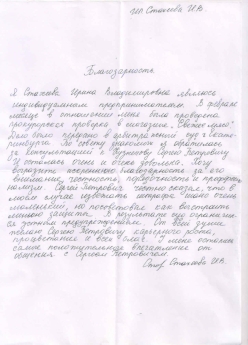 ИП Стахеева И.В.
Благодарность
Я Стахеева Ирина Владимировна являюсь
индивидуальным предпринимателем. В феврале
месяце в отношении меня была проведена
прокурорская проверка в магазине "Свежее мясо".
Дело было передано в арбитражный суд г. Екате-
ринбурга. По совету знакомых я обратилась
за консультацией к Сергею Петровичу
И осталась очень и очень довольна. Хочу
выразить искреннюю благодарность за его
внимание, честность, порядочность и професси-
онализм. Сергей Петрович честно сказал, что в
любом случае избежать штрафа шанс очень
маленький, но посоветовал как выстроить
линию защиты. В результате суд ограничил-
ся устным предупреждением. От всей души
желаю Сергею Петровичу карьерного роста,
процветания и всех благ. У меня остались
самые положительные впечатления от
общения с Сергеем Петровичем.
Стахеева И.В.